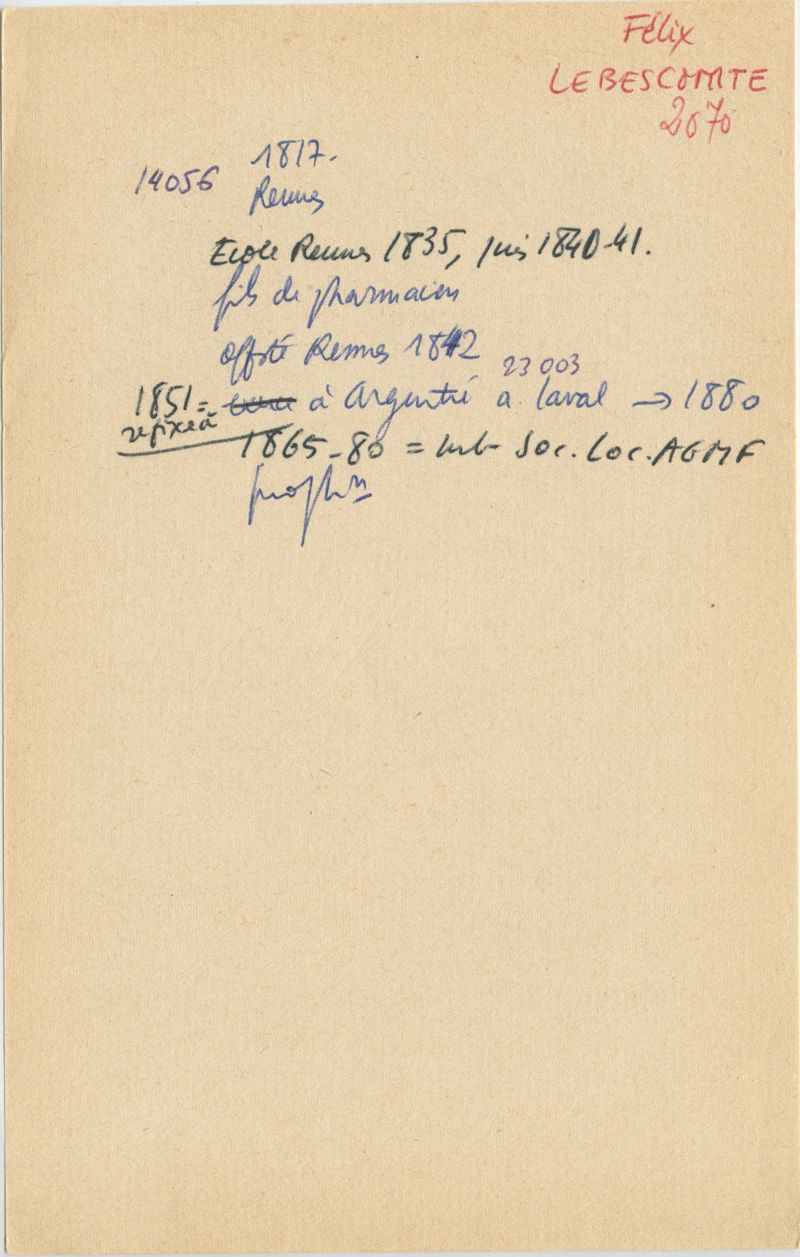 Félix
LEBESCOMTE
2070
1817.
14056
Rennes
Ecole Rennes 1835, puis 1840-41.
fils de pharmacien
offsté Rennes 1842
23 003
1851 = à Argentré a. Laval → 1880
se fixe à
1865-80 = mb Soc. Loc. AGMF